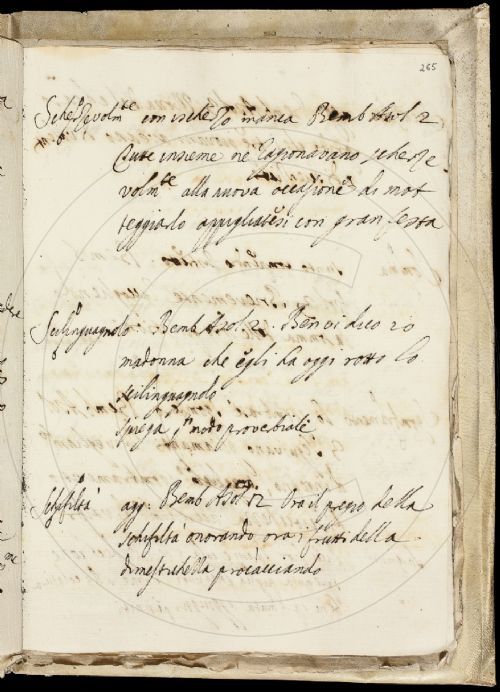 265
Scherzevolmte con ischerzo manca Bemb Asol 2
Tutte insieme ne ragionavano scherze
volmte alla nuova occasione di mot
teggiarlo appigliatesi con gran festa
Scilinguagnolo. Bemb Asol. 2. Ben vi dico io
madonna che egli ha oggi rotto lo
scilinguagnolo
spiega modo proverbiale
Schifiltà
agg. Bemb Asol 2 Ora il pregio della
schifiltà onorando ora i frutti della
dimestichella procacciando